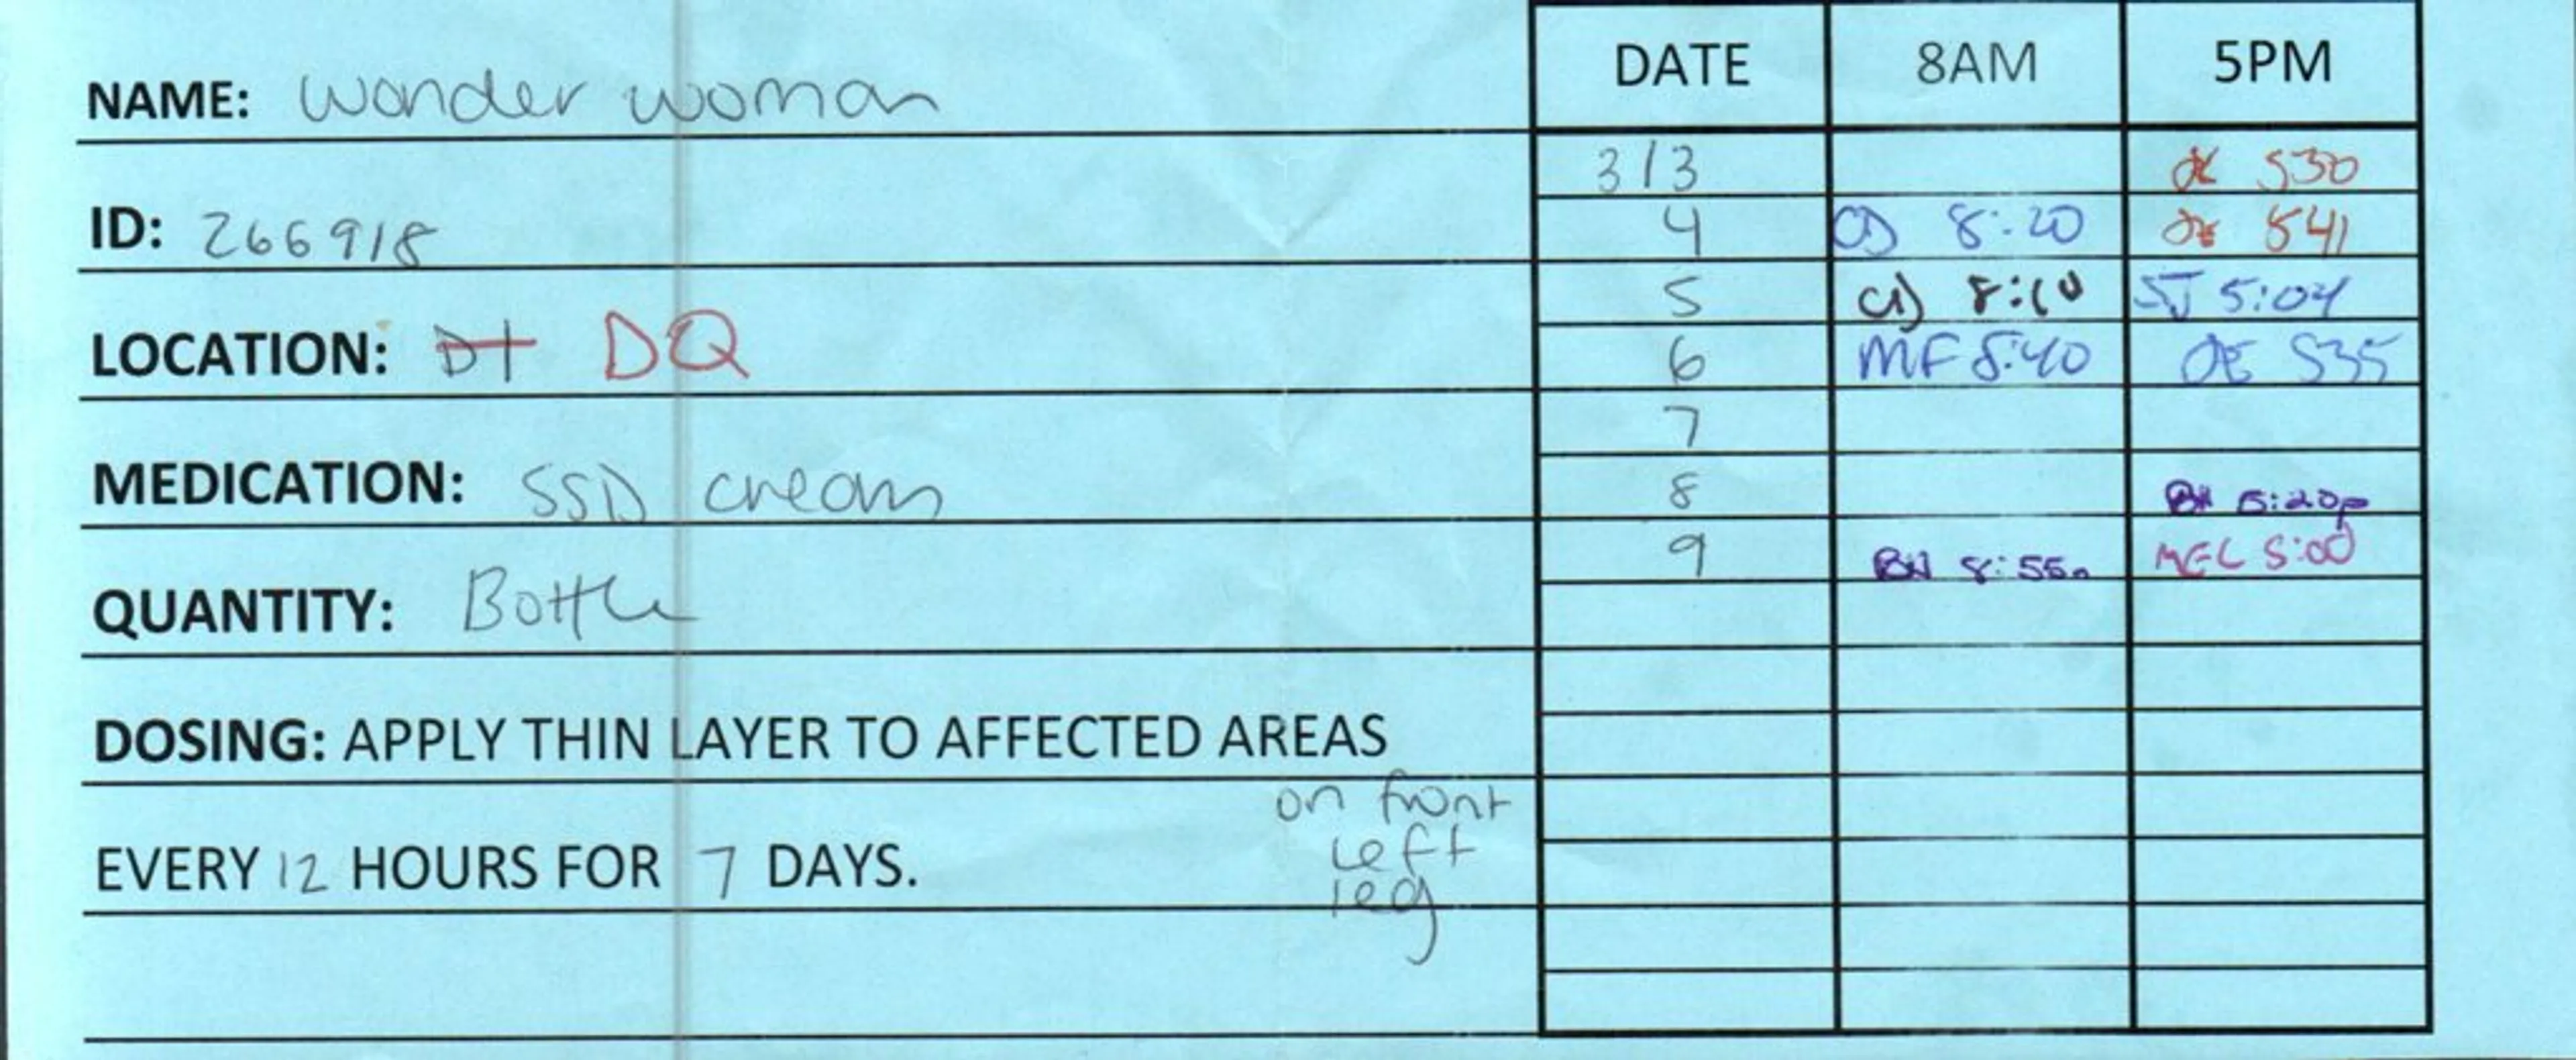 NAME: Wonder Woman
ID: 266918
LOCATION: DT DQ
MEDICATION: SSD cream
QUANTITY: Bottle
DOSING: APPLY THIN LAYER TO AFFECTED AREAS
on front
left
leg
EVERY 12 HOURS FOR 7 DAYS.
DATE 8AM 5PM
3/3 530
4 8:20 541
5 8:10 SJ 5:04
6 MF 8:40 535
7
8 5:20p
9 8:55a MEL 5:00